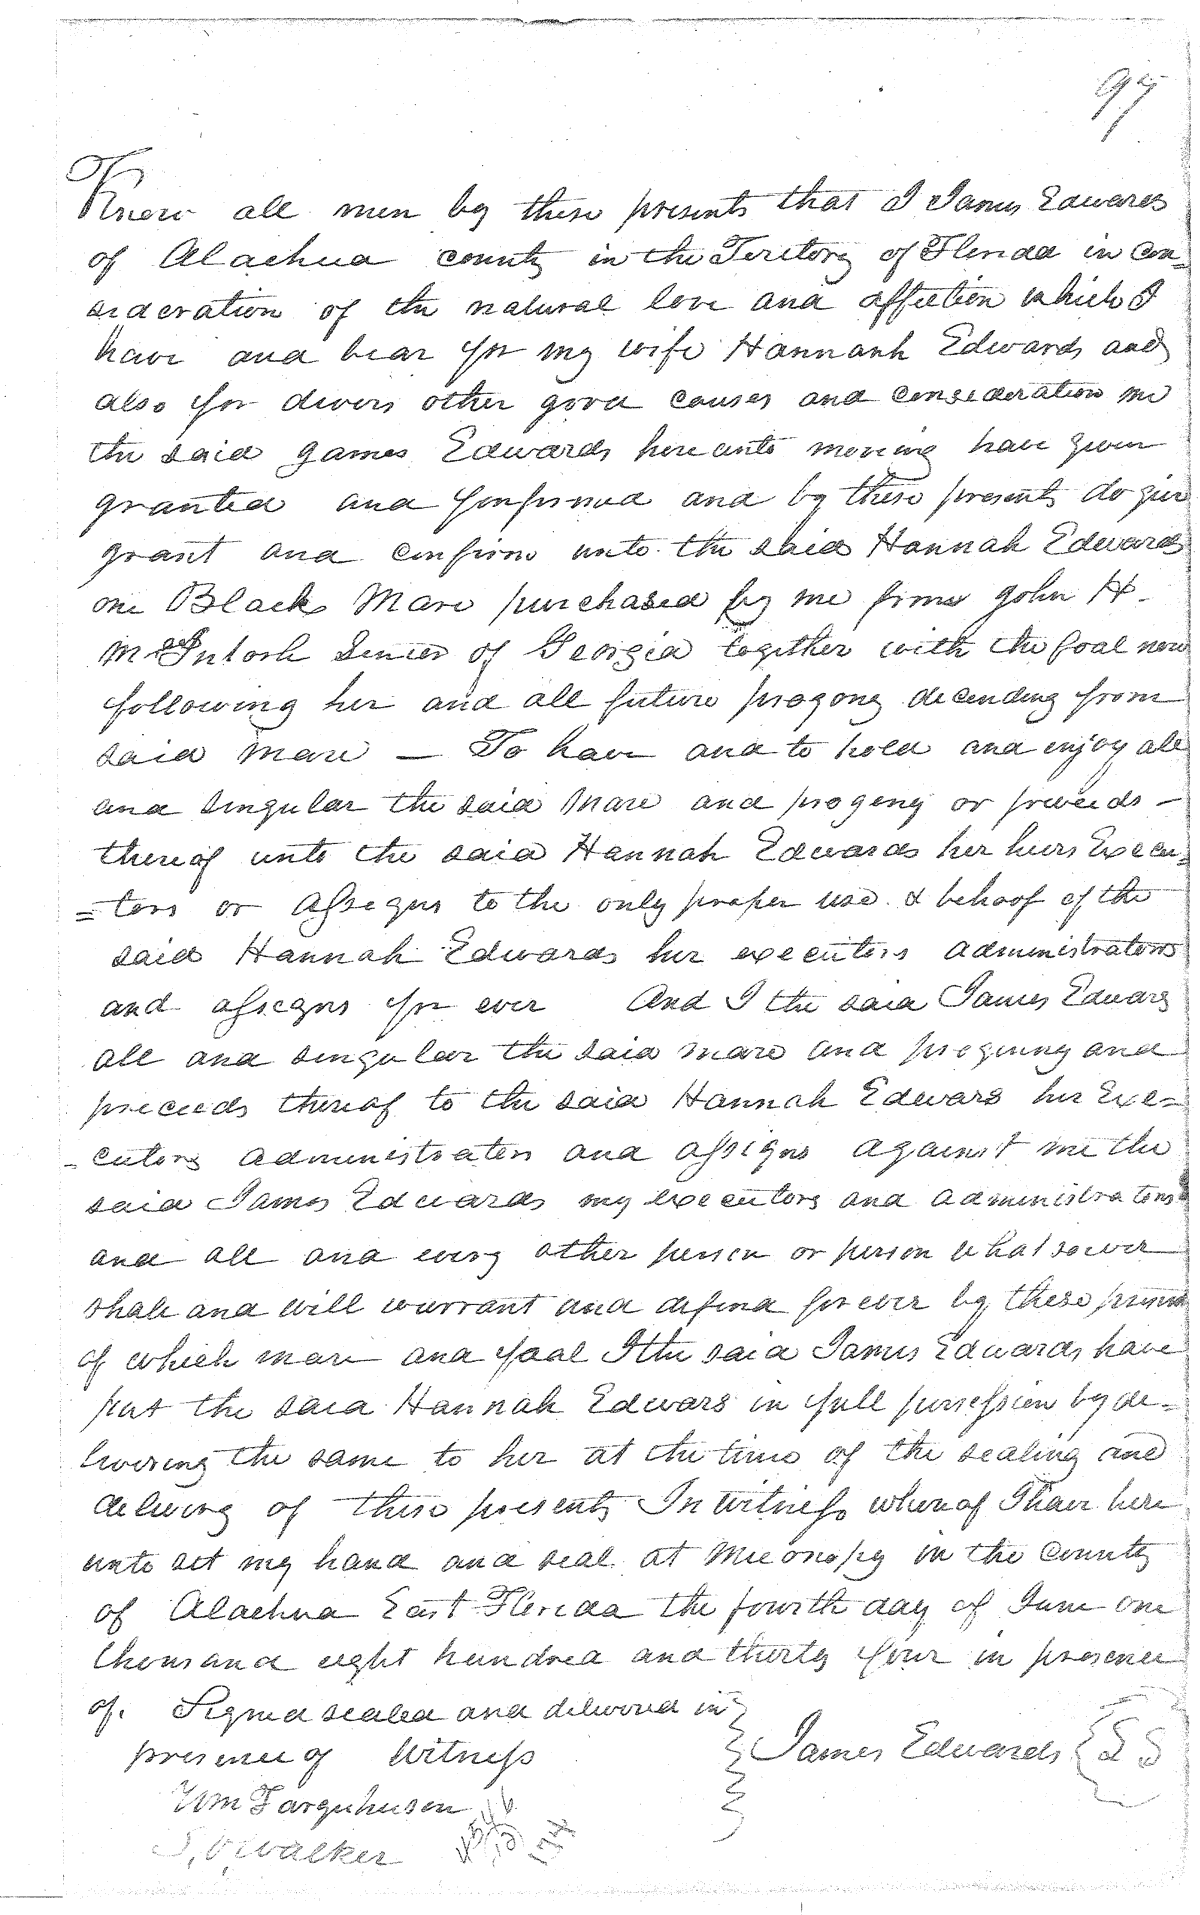 97
Know all men by these presents that I James Edwards
of Alachua county in the Teritory of Florida in con=
sideration of the natural love and affection which I
have and bear for my wife Hannanh Edwards and
also for divers other good causes and consideration me
the said James Edwards here unto moving have given
granted and confirmed and by these presents do give
grant and confirm unto the said Hannah Edwards
one Black Mare purchased by me from John H.
McIntosh Senior of Georgia together with the foal now
following her and all future progony decending from
said mare — To have and to hold and enjoy all
and singular the said mare and progeny or proceeds –
thereof unto the said Hannah Edwards her heirs Execu=
=tors or assegns to the only proper use & behoof of the
said Hannah Edwards her executors administrators
and assegns for ever And I the said James Edwars
all and singular the said mare and progeny and
proceeds thereof to the said Hannah Edwars her Exe=
-cutors administrators and assigns against me the
said James Edwards my executors and administrators
and all and every other person or person whatsoever
shall and will warrant and defend for ever by these
of which mare and foal I the said James Edwards have
put the said Hannah Edwars in full possession by de=
livering the same to her at the time of the sealing and
delivring of these presents In witness whereof I have here
unto set my hand and seal at Miconopy in the County
of Alachua East Florida the fourth day of June one
thousand eight hundred and thirty four in presence
of. Signed sealed and delivered in
presence of Witness
James Edwards L S
Wm
Walker